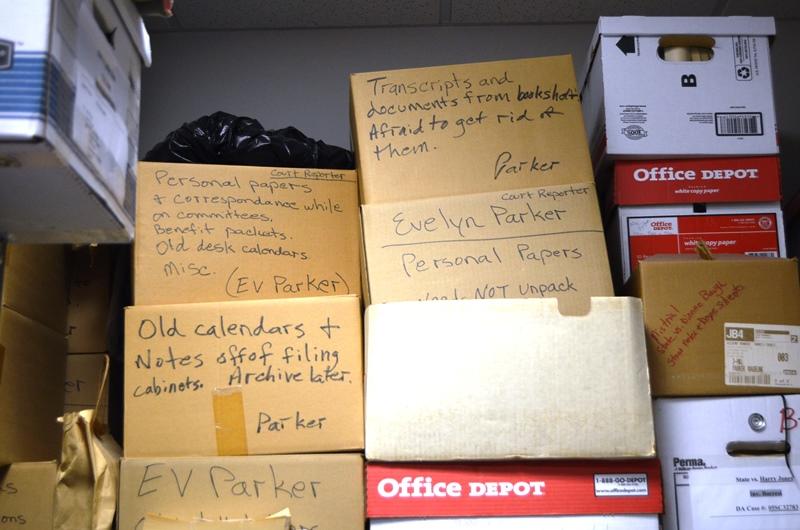 Transcripts and
documents from bookshelf.
Afraid to get rid of
them.
Parker
Court Reporter
Personal papers
& correspondance while
on committees.
Benefit packets.
Old desk calendars
misc.
(EV Parker)
Court Reporter
Evelyn Parker
Personal Papers
NOT unpack
Old calendars &
Notes off of filing
cabinets. Archive later.
Parker
EV Parker
Office DEPOT
1-888-GO-DEPOT
www.officedepot.com
B
Office DEPOT
white copy paper
Office DEPOT
white copy paper
Mistrial
State vs.
JB4
003
Perma
State vs. Harry Jones
DA Case #: